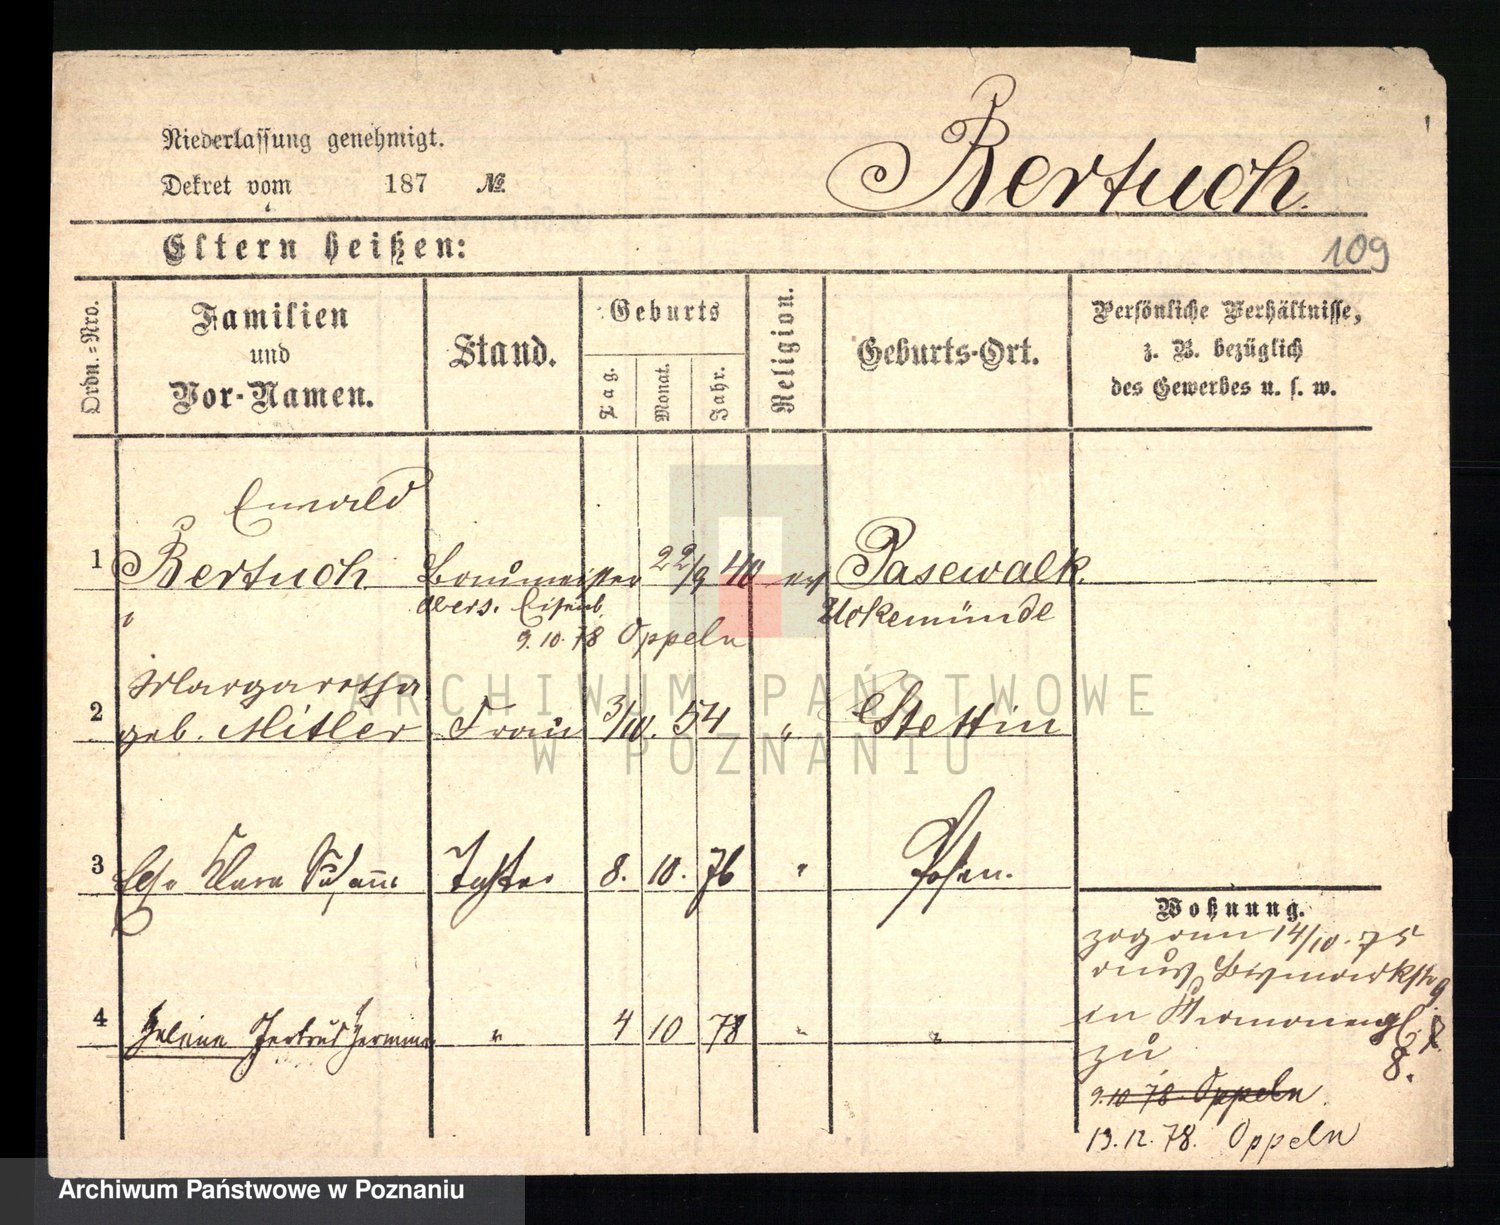 Niederlassung genehmigt.
Dekret vom 187 №
Bertuch.
Eltern heißen:
109
Ordn.=Nro.
Familien
und
Vor-Namen.
Stand.
Geburts
Tag.
Monat.
Jahr.
Religion.
Geburts-Ort.
Persönliche Verhältnisse,
z. B. bezüglich
des Gewerbes u. s. w.
1
Bertuch
Baumeister 22/9 40 ev Pasewalk.
obers. Eisenb Uekemünde
9.10.78 Oppeln
ARCHIWUM PAŃSTWOWE
W POZNANIU
Margaretha
2 geb. Mitler Frau 3/10. 54 " Stettin
3 Clara Tochter 8. 10. 76 " Posen.
4 Helene Gertrud Hermine " 4 10 78 " "
Wohnung.
zog am 14/10. 75
aus Bismarkstr 9
in
zu 8.
9.10 78. Oppeln
13.12.78. Oppeln
Archiwum Państwowe w Poznaniu